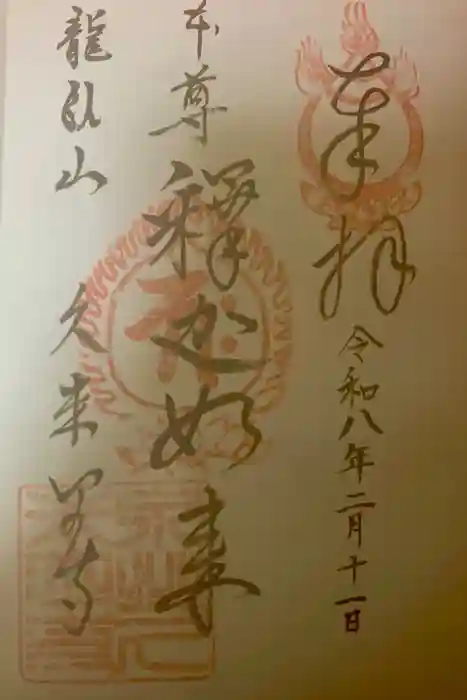 奉拝
令和八年二月十一日
本尊
釋迦如来
龍臥山
久来里寺